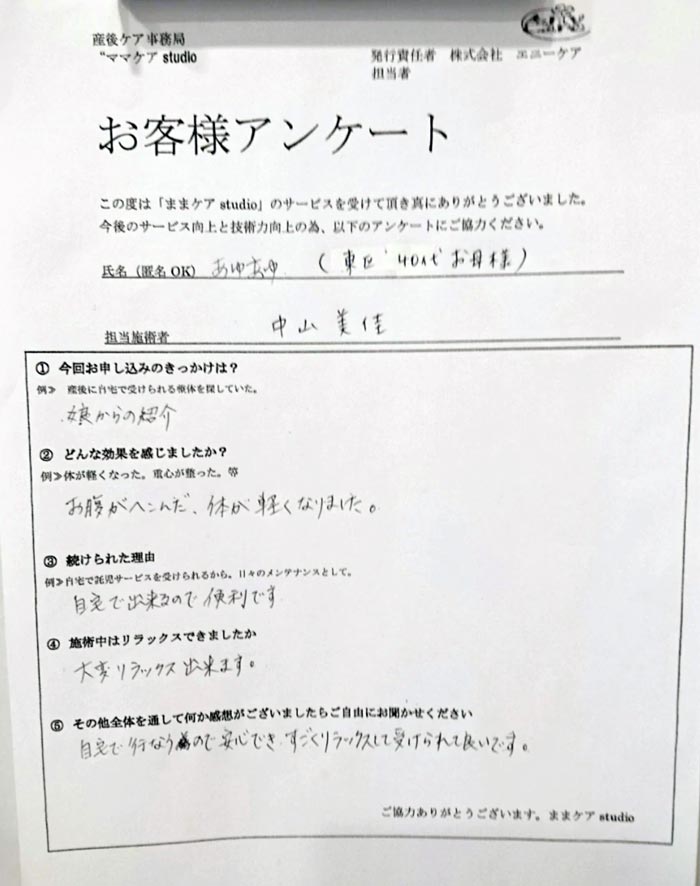 産後ケア事務局
“ママケア studio
発行責任者 株式会社 エニーケア
担当者
お客様アンケート
この度は「ままケア studio」のサービスを受けて頂き真にありがとうございました。
今後のサービス向上と技術力向上の為、以下のアンケートにご協力ください。
氏名(匿名 OK) あゆあゆ (東区 40代 お母様)
担当施術者 中山 美佳
① 今回お申し込みのきっかけは?
例≫ 産後に自宅で受けられる整体を探していた。
娘からの紹介
② どんな効果を感じましたか?
例≫体が軽くなった。重心が整った。等
お腹がへこんだ、体が軽くなりました。
③ 続けられた理由
例≫自宅で託児サービスを受けられるから。日々のメンテナンスとして。
自宅で出来るので便利です
④ 施術中はリラックスできましたか
大変リラックス出来ます。
⑤ その他全体を通して何か感想がございましたらご自由にお聞かせください
自宅で行なうので安心でき、すごくリラックスして受けられて良いです。
ご協力ありがとうございます。ままケア studio